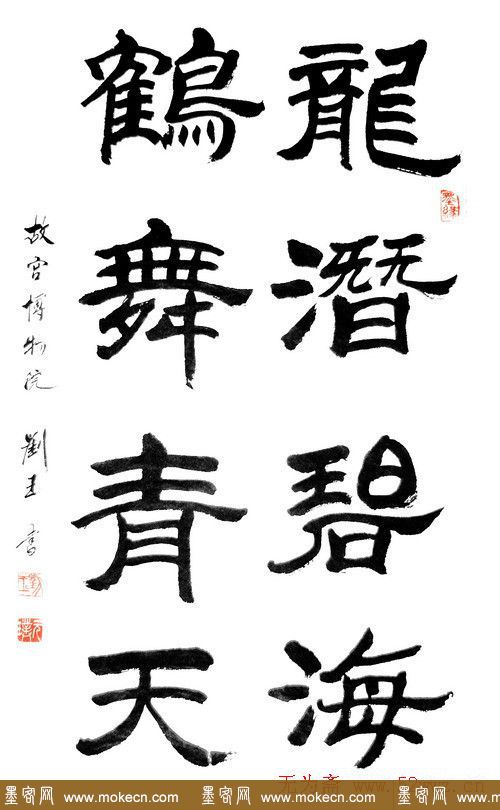 龍潛碧海
鶴舞青天
故宮博物院 劉玉 書
无为斋
墨客网 www.mokecn.com 墨客网 www.mokecn.com 墨客网